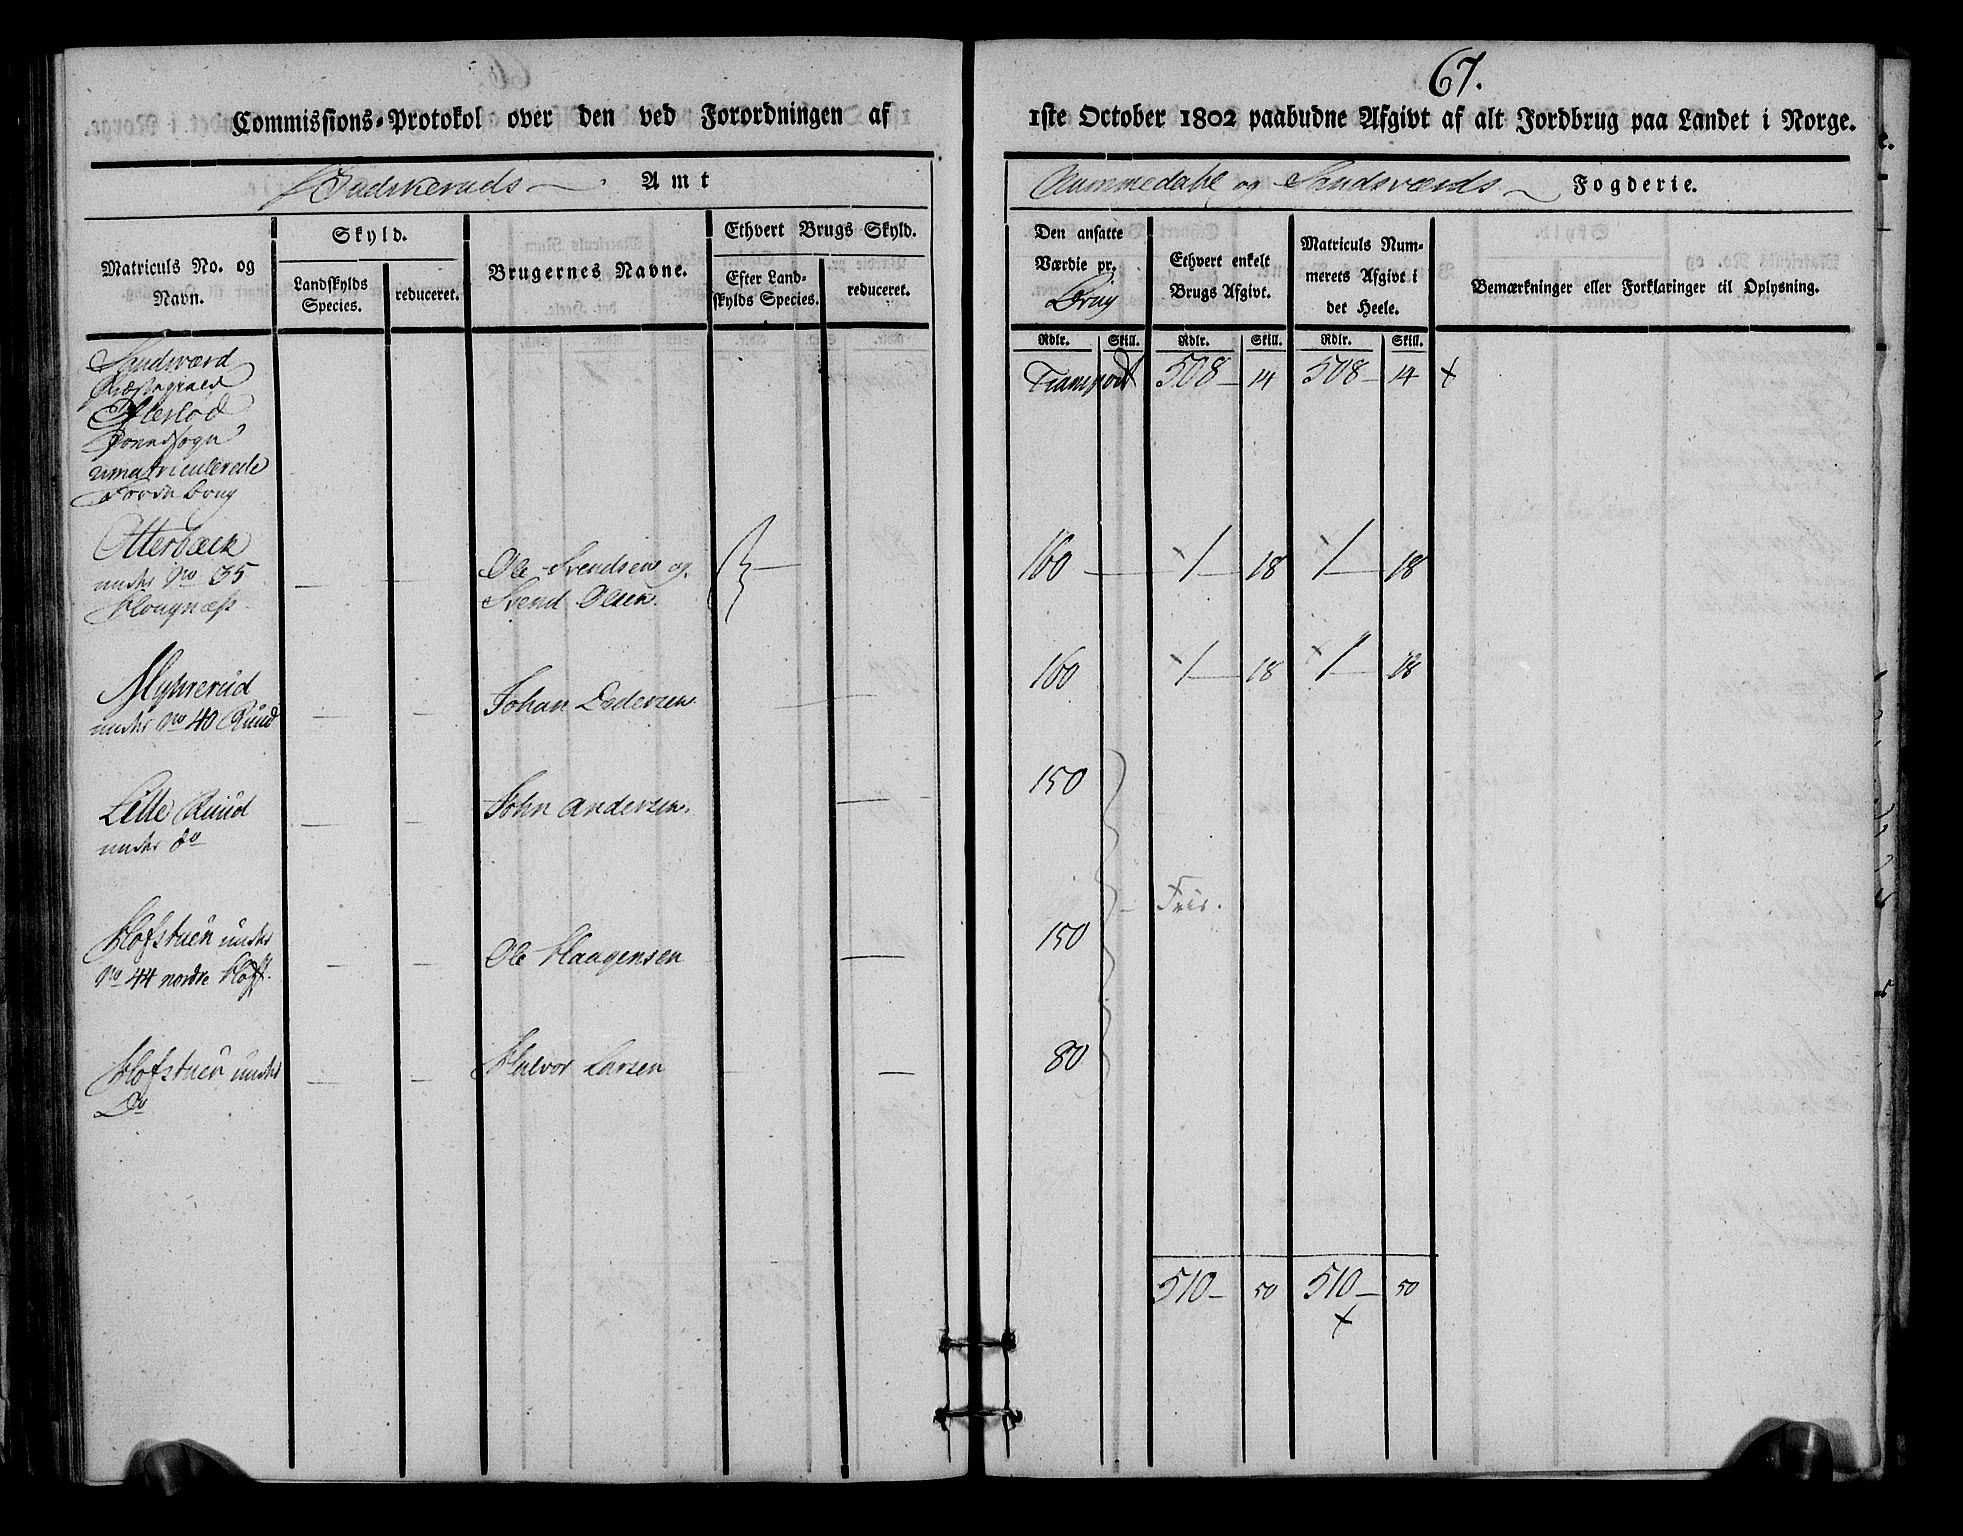 67.
Commissions-Protokol over den ved Forordningen af 1ste October 1802 paabudne Afgivt af alt Jordbrug paa Landet i Norge.
Buskeruds Amt
Nummedahl og Sandsværds Fogderie.
Matriculs No. og Navn.
Skyld.
Landskylds Species.
reduceret.
Brugernes Navne.
Ethvert Brugs Skyld.
Efter Landskylds Species.
reduceret.
Den ansatte Værdie pr. Brug
Ethvert enkelt Brugs Afgivt.
Matriculs Nummerets Afgivt i det Heele.
Bemærkninger eller Forklaringer til Oplysning.
Rdlr. Skill. Rdlr. Skill. Rdlr. Skill.
Sandsværd
Præstegield
Eftelød
Sogn
umatriculerede
Jorde Brug
Transport 508 – 14 508 – 14 +
Otterbæck
under No 35
Hougnæss
Ole Svendsen og
Svend Olsen.
160 – 1 – 18 1 – 18
Myhrerud
under No 40 Ruud
Johan Pedersen
160 1 – 18 1 – 18
Lille Ruud
under do
John Andersen.
150
Hofstuen under
No 44 nordre Hoff.
Ole Haagensen
150
Frie.
Hofstuen under
Do
Halvor Larsen
80
510 – 50 510 – 50
+